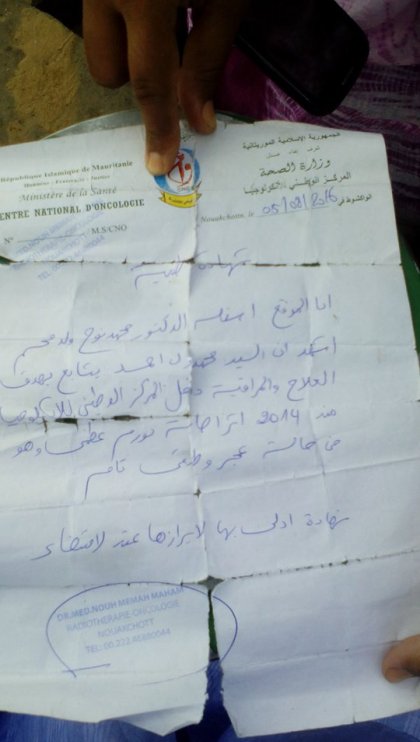 République Islamique de Mauritanie
Honneur - Fraternité - Justice
Ministère de la Santé
CENTRE NATIONAL D'ONCOLOGIE
N° M.S/CNO
الجمهورية الإسلامية الموريتانية
شرف إخاء عدل
وزارة الصحة
المركز الوطني للأنكولوجيا
Nouakchott, le 05/08/2016 انواكشوط في
شهادة طبية
انا الموقع اسفله الدكتور محمد نوح ولد محم
اشهد ان السيد احمد يتابع بهدف
العلاج والمراقبة داخل المركز الوطني للانكولوجيا
منذ 2014 اثر اصابته بورم عظمي وهو
في حالة عجز وظيفي تام
شهادة ادلي بها لابرازها عند الاقتضاء
DR.MED.NOUH MEMAH MAHAM
RADIOTHERAPIE-ONCOLOGIE
NOUAKCHOTT
TEL:00.222.46880044